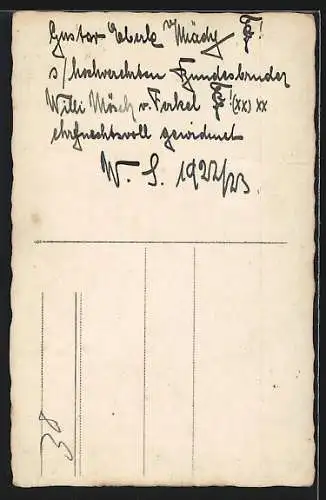 Gustav Eberle v/ Mädy !
s/ hochverehrten Bundesbruder
Willi Mösch v. Ferkel ! (xx) xx
ehrfurchtsvoll gewidmet
W. S. 1922/23.
38